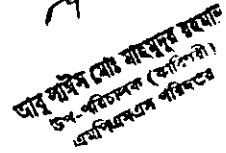 আবু সাঈদ মোঃ মাহমুদুর রহমান
উপ-পরিচালক (কারিগরী)
এমপিএসএস পরিদপ্তর